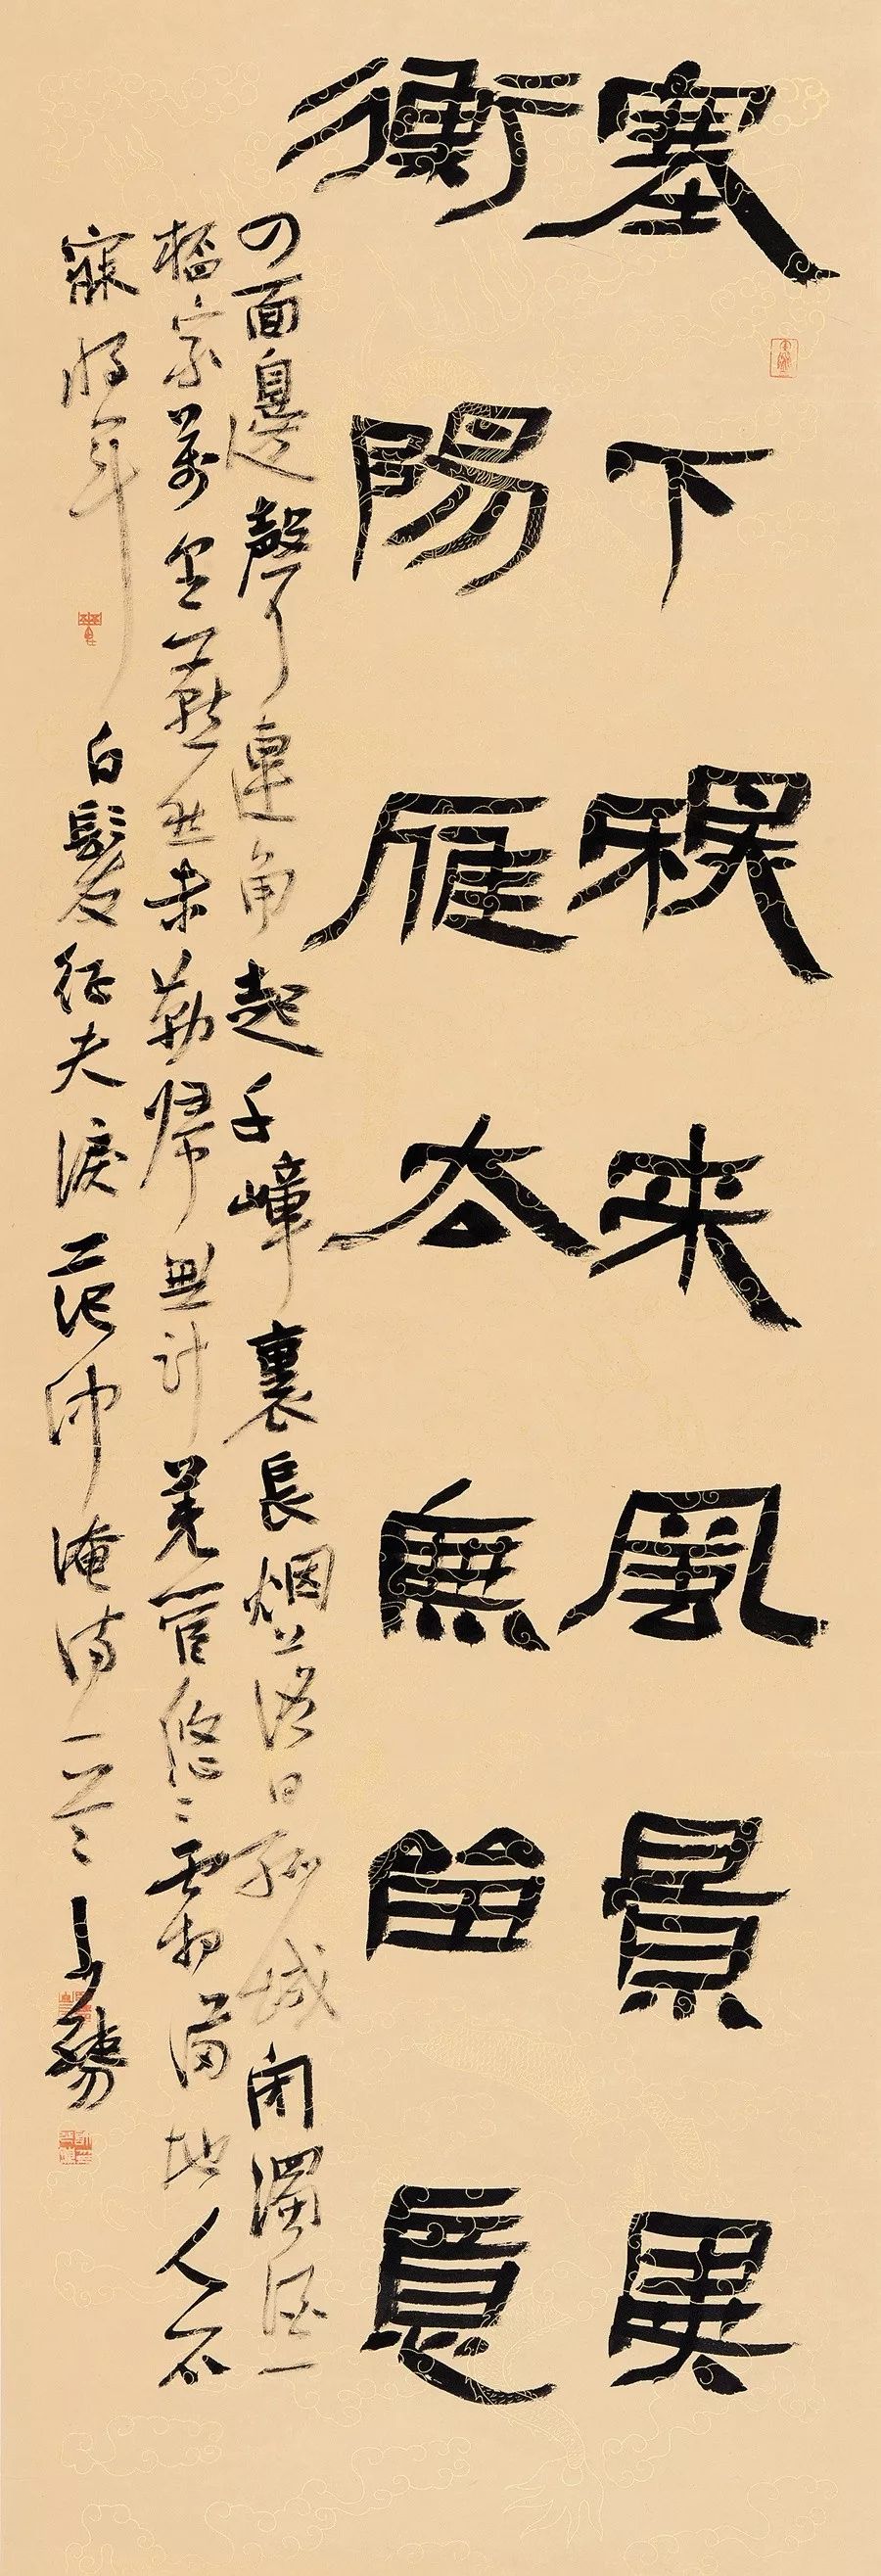 塞下秋来風景異
衡陽雁去無留意
四面邊聲連角起千嶂裏長烟落日孤城閉濁酒一
桮家萬里燕然未勒歸無計羌管悠〻霜滿地人不
寐將軍白髮征夫淚范仲淹詩一首